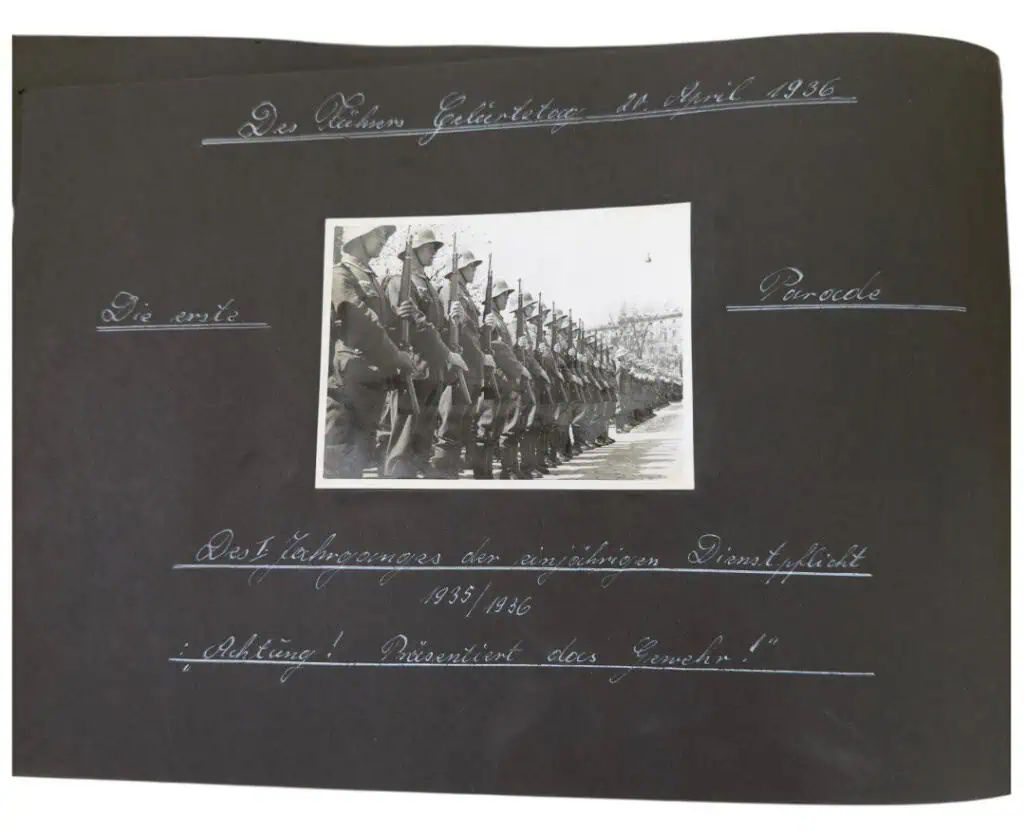 Des Führers Geburtstag 20. April 1936
Die erste
Parade
Des I. Jahrganges der einjährigen Dienstpflicht
1935/1936
: „Achtung! Präsentiert das Gewehr!“